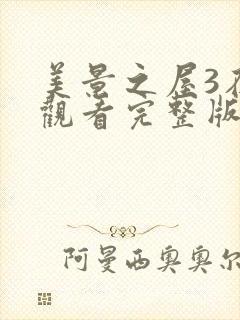 美景之屋3在
觀看完整版
阿曼西奧奧尔